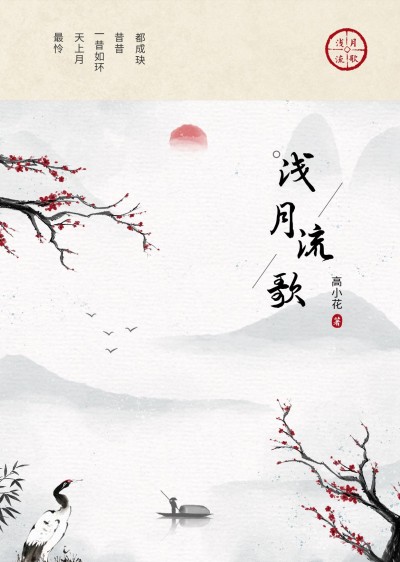 最怜
天上月
一昔如环
昔昔
都成玦
浅月
流歌
浅月流歌
高小花 著